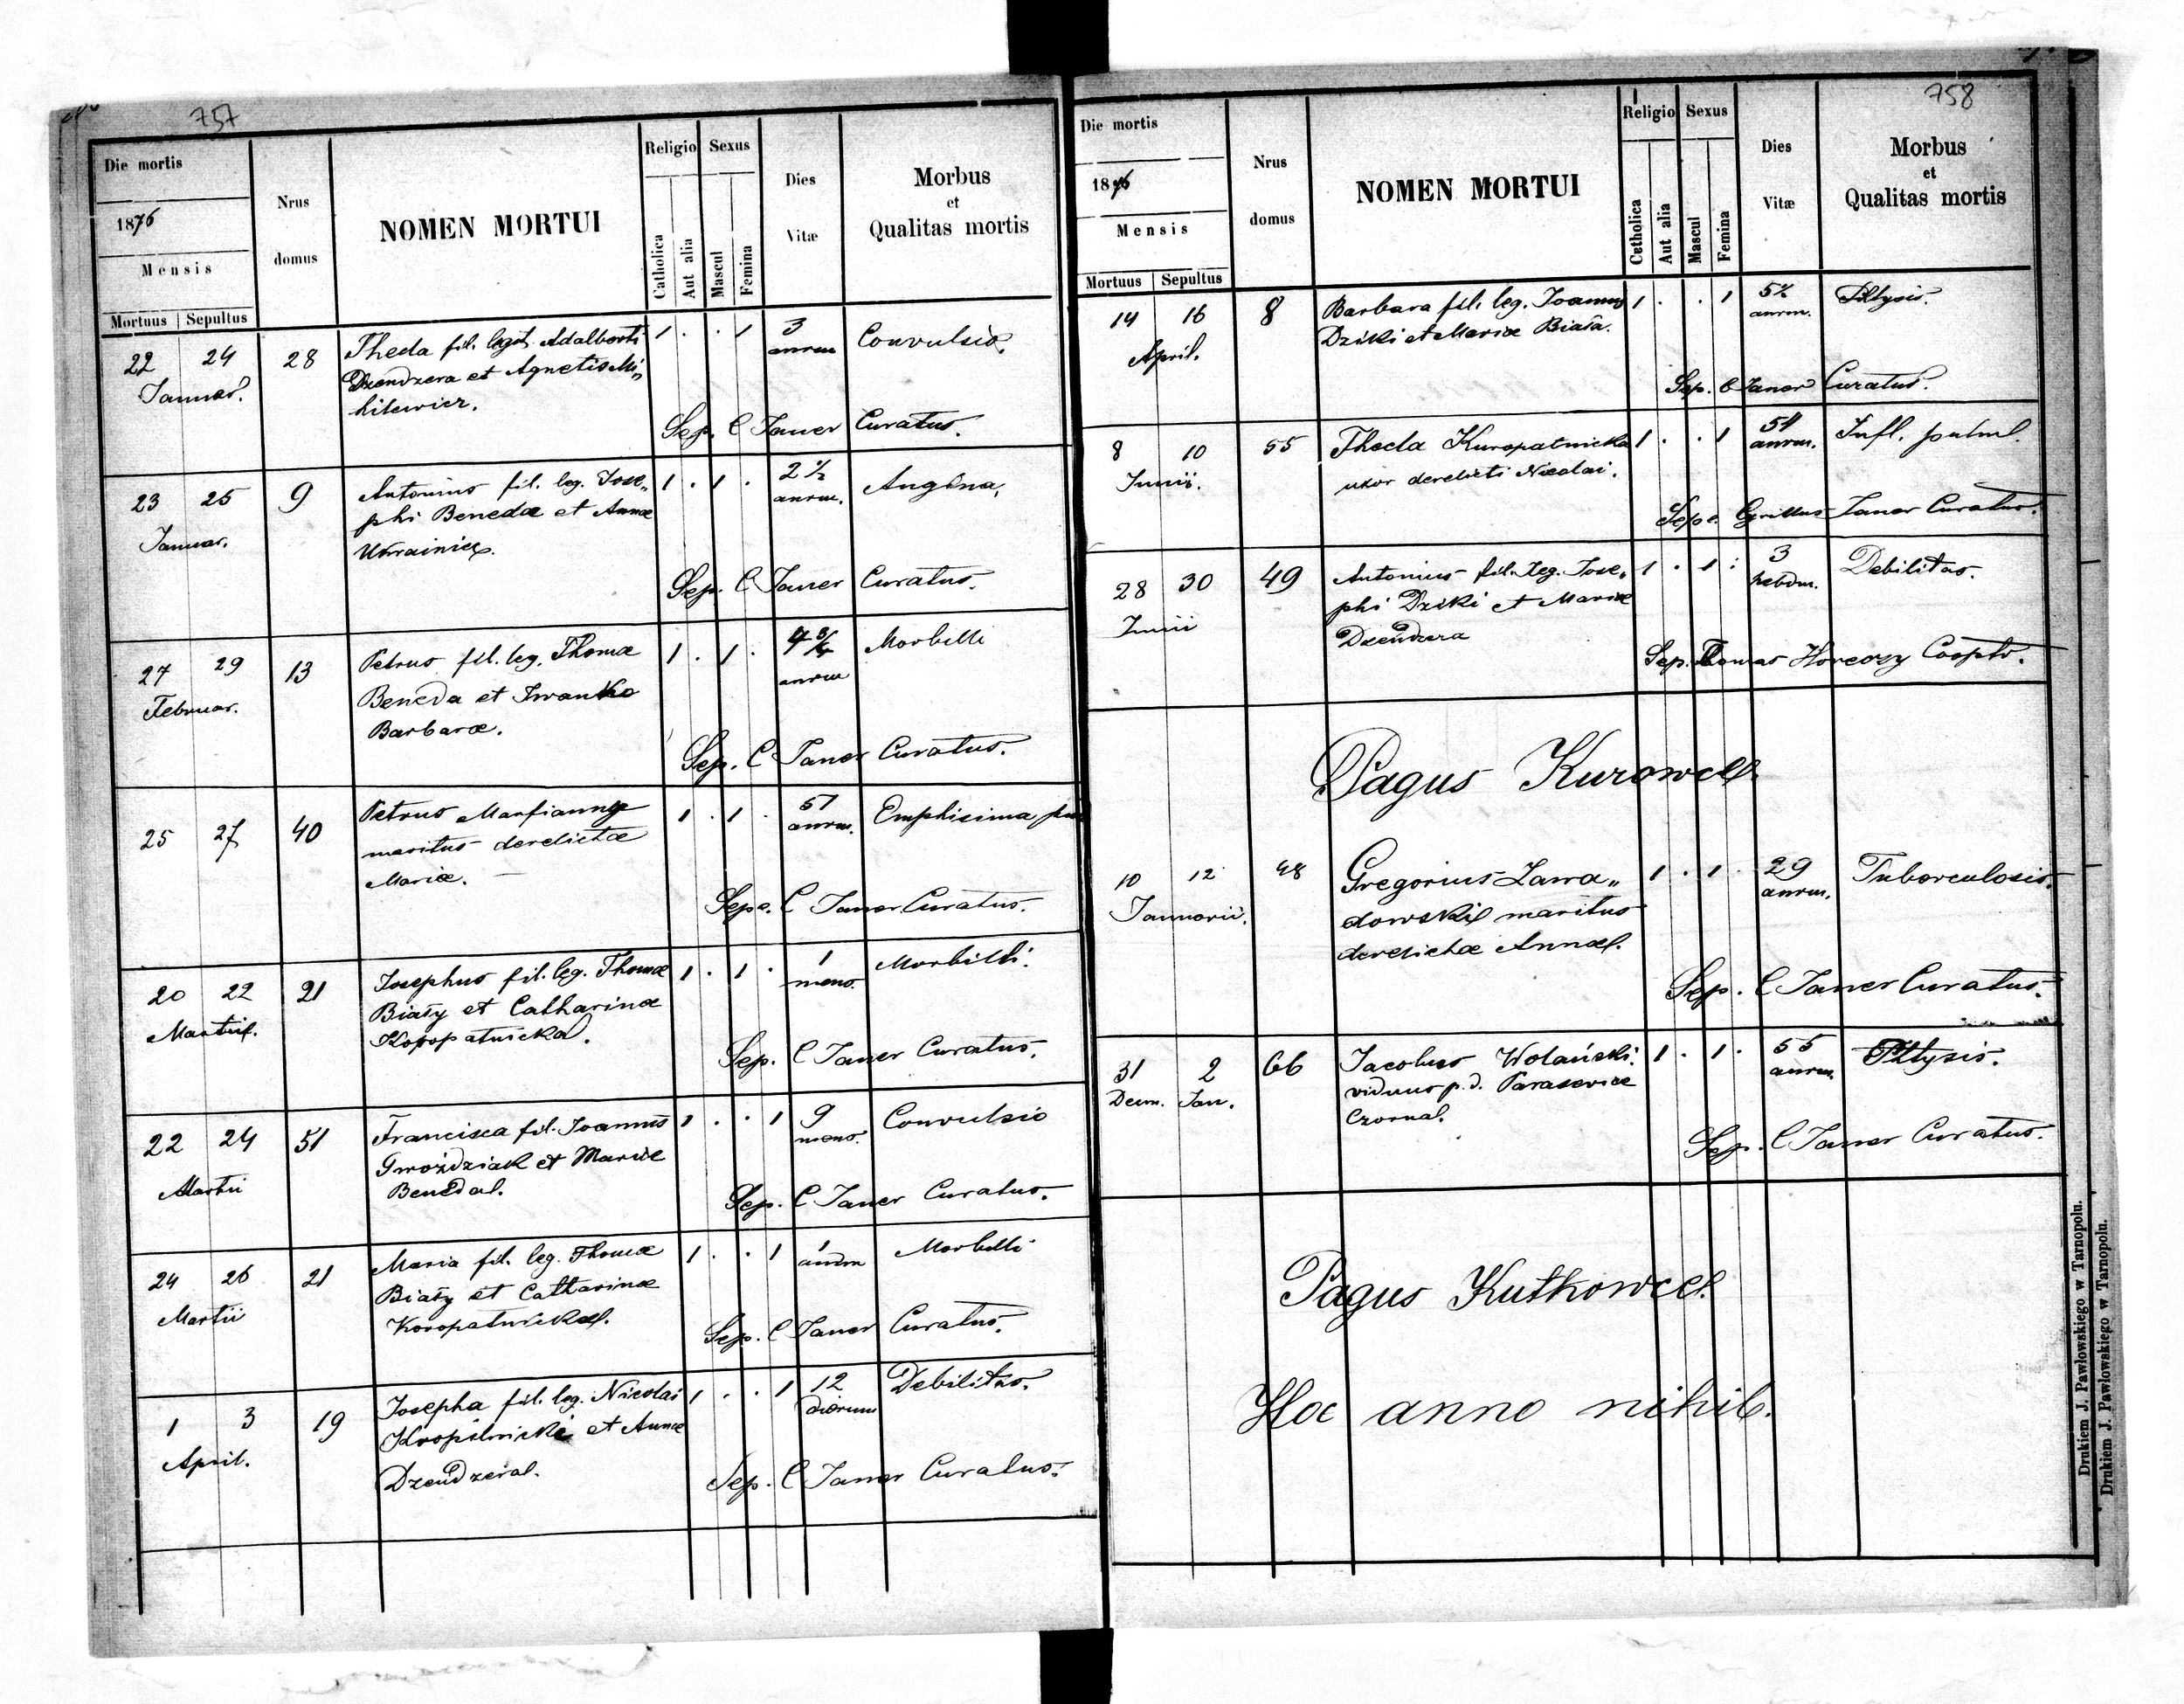 757
Die mortis
1876
Mensis
Mortuus Sepultus
Nrus domus
NOMEN MORTUI
Religio
Catholica
Aut alia
Sexus
Mascul
Femina
Dies Vitæ
Morbus
et
Qualitas mortis
22 24 28 Thecla fil. legit. Adalberti 1 . . 1 3 Convulsio.
Januar. Dzendzera et Agnetis Mi„ annum
hilewicz.
Sep. C Janer Curatus.
23 25 9 Antonius fil. leg. Jose„ 1 . 1 . 2 ½ Angina,
Januar. phi Beneda et Annæ annm.
Ukrainiec.
Sep. C Janer Curatus.
27 29 13 Petrus fil. leg. Thomæ 1 . 1 . 4 ¾ Morbilli
Februar. Beneda et Iwanko annm
Barbaræ.
Sep. C Janer Curatus.
25 27 40 Petrus 1 . 1 . 51 Emphisima
maritus derelictæ annm.
Mariæ.
Sep. C Janer Curatus.
20 22 21 Josephus fil. leg. Thomæ 1 . 1 . 1 Morbilli.
Martii. Biały et Catharinæ mens.
Koropatnicka.
Sep. C Janer Curatus.
22 24 51 Francisca fil. Joannis 1 . . 1 9 Convulsio
Martii Gwoździak et Mariæ mens.
Beneda.
Sep. C Janer Curatus.
24 26 21 Maria fil. leg. Thomæ 1 . . 1 1 Morbilli
Martii Biały et Catharinæ annm
Koropatnicka.
Sep. C Janer Curatus.
1 3 19 Josepha fil. leg. Nicolai 1 . . 1 12 Debilitas.
April. et Annæ dierum
Dzendzera.
Sep. C Janer Curatus.
758
Die mortis
1876
Mensis
Mortuus Sepultus
Nrus domus
NOMEN MORTUI
Religio
Catholica
Aut alia
Sexus
Mascul
Femina
Dies Vitæ
Morbus
et
Qualitas mortis
14 16 8 Barbara fil. leg. Joannis 1 . . 1 Phtysis.
April. Dziki et Mariæ Biała. annm.
Sep. C Janer Curatus.
8 10 55 Thecla Kuropatnicka 1 . . 1 54 Infl. pulml.
Junii. uxor derelicti Nicolai. annm.
Sep. Cyrillus Janer Curatus.
28 30 49 Antonius fil. leg. Jose„ 1 . 1 . 3 Debilitas.
Junii phi Dziki et Mariæ hebdm.
Dzendzera
Sep. Cooptr.
Pagus Kurowce
10 12 48 Gregorius Zawa„ 1 . 1 . 29 Tuberculosis.
Januarii. dowski maritus annm.
derelictæ Annæ.
Sep. C Janer Curatus.
31 2 66 Jacobus Wolański 1 . 1 . 55 Phtysis.
Decm. Jan. viduus p. d. Parasceviæ annm.
Czorna.
Sep. C Janer Curatus.
Pagus Kutkowce.
Hoc anno nihil.
Drukiem J. Pawłowskiego w Tarnopolu.
Drukiem J. Pawłowskiego w Tarnopolu.